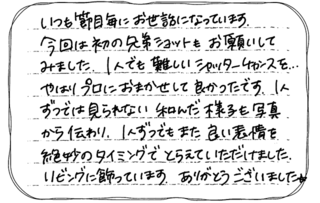 いつも節目毎にお世話になっています。
今回は初の兄弟ショットもお願いして
みました。1人でも難しいシャッターチャンスを…
やはりプロにおまかせして良かったです。1人
ずつでは見られない和んだ様子も写真
から伝わり、1人ずつでもまた良い表情を
絶妙のタイミングでとらえていただけました。
リビングに飾っています。ありがとうございました。